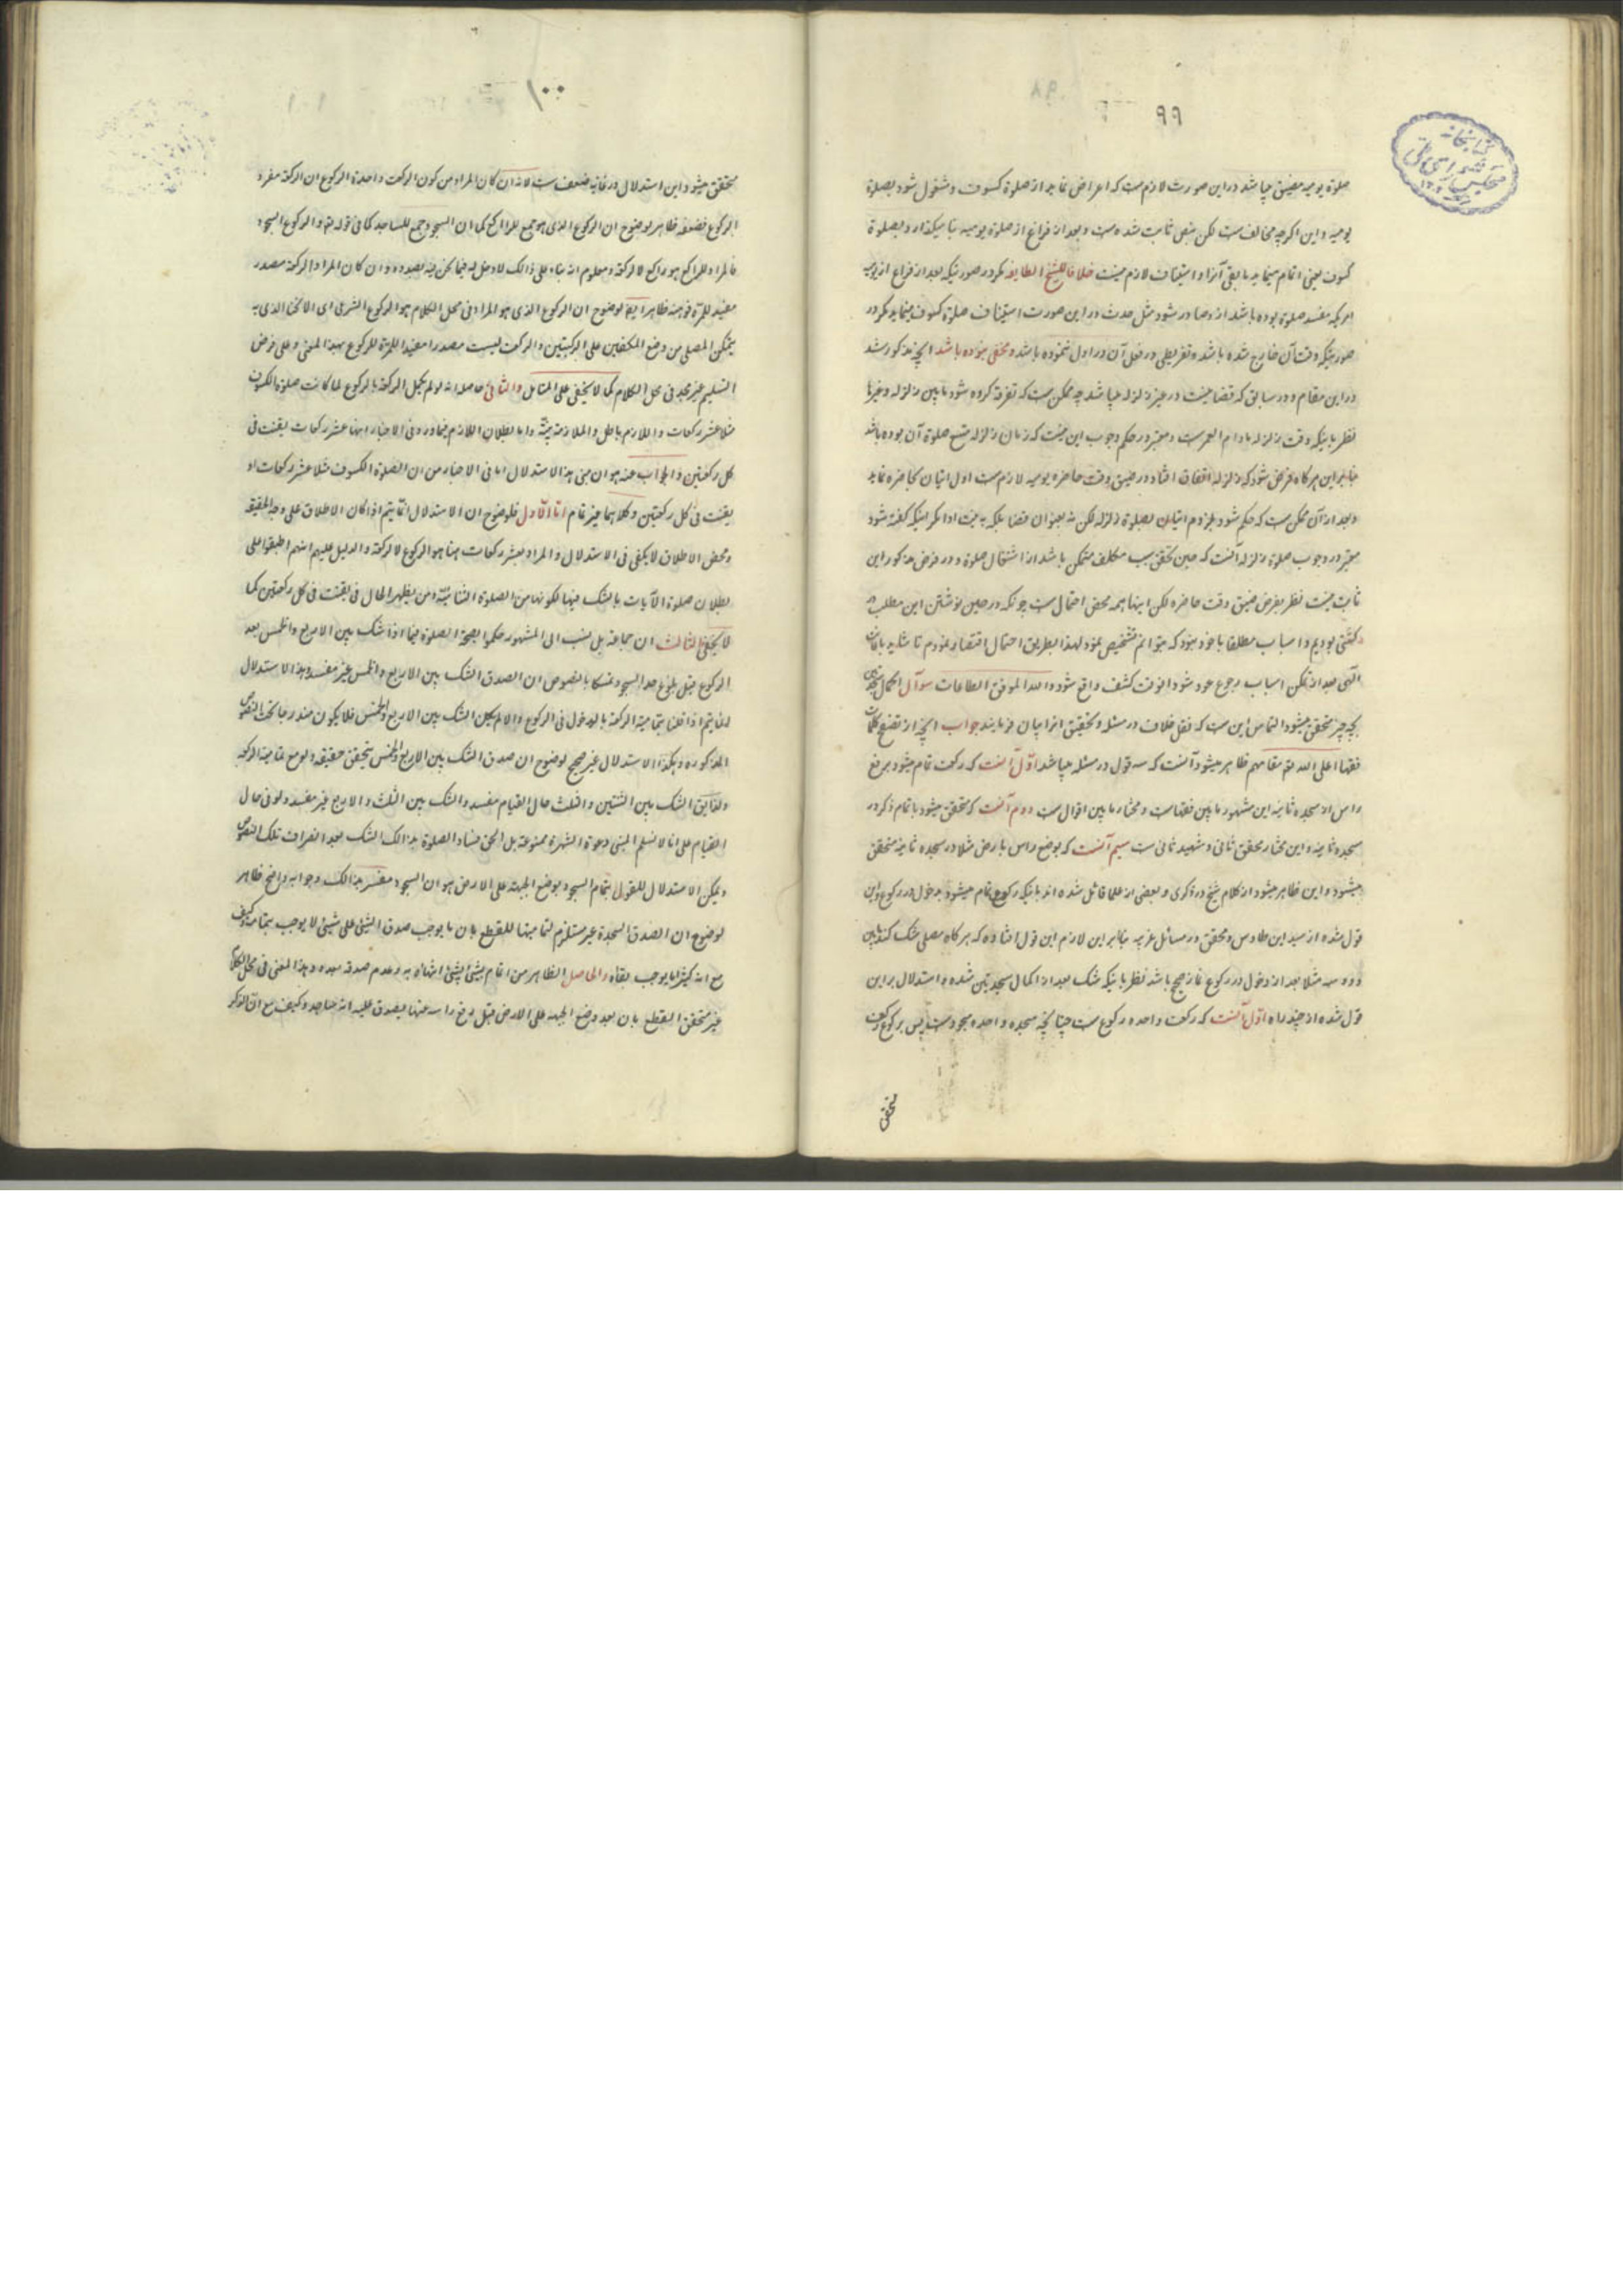 ٩٩
صلوة یومیه مضیق میباشد در این صورت لازم است که اعراض نماید از صلوة کسوف و مشغول شود بصلوة
یومیه و این اگرچه مخالف است لکن بنص ثابت شده است و بعد از فراغ از صلوة یومیه بنا میگذارد بصلوة
کسوف یعنی اتمام مینماید ما بقی آنرا و استیناف لازم نیست خلافا للشیخ الطایفه مگر در صورتیکه بعد از فراغ از یومیه
امریکه مفسد صلوة بوده باشد از او صادر شود مثل حدث در این صورت استیناف صلوة کسوف مینماید مگر در
صورتیکه وقت آن خارج شده باشد و تفریطی در فعل آن در اول ننموده باشد و مخفی نبوده باشد آنچه مذکور شد
در این مقام و در سابق که قضا نیست در غیر زلزله میباشد چه ممکن است که تفرقه کرده شود ما بین زلزله و غیرها
نظر باینکه وقت زلزله مادام العمر است و معتبر در حکم وجوب این نیست که زمان زلزله متسع صلوة آن بوده باشد
بنابراین هرگاه فرض شود که زلزله اتفاق افتاد در ضیق وقت حاضره یومیه لازم است اول اتیان بحاضره نماید
و بعد از آن ممکن است که حکم شود بلزوم اتیان بصلوة زلزله لکن نه بعنوان قضا بلکه به نیت ادا مگر اینکه گفته شود
معتبر در وجوب صلوة زلزله آنست که حین تحقق سبب مکلف متمکن باشد از اشتغال صلوة و در فرض مذکور این
ثابت نیست نظر بفرض ضیق وقت حاضره لکن اینها همه محض احتمال است چونکه در حین نوشتن این مطلب در
کشتی بودیم و اسباب مطلقا با خود نبود که بتوانم تشخیص نمود لهذا بطریق احتمال اقتصار نمودم تا شاید باعانت
الهی بعد از تمکن اسباب رجوع خود شود آنوقت کشف واقع شود والله الموفق الطاعات سوآل اکمال سجدتین
بچه چیز متحقق میشود التماس این است که نقل خلاف در مسئله و تحقیق آنرا بیان فرمایند جواب آنچه از تتبع کلمات
فقها اعلی الله تع مقامهم ظاهر میشود آنست که سه قول در مسئله میباشد اول آنست که رکعت تمام میشود برفع
راس از سجده ثانیه این مشهور ما بین فقهاست و مختار ما بین اقوال است دوم آنست که متحقق میشود باتمام ذکر در
سجده ثانیه و این مختار محقق ثانی و شهید ثانی ست سیم آنست که بوضع راس بارض مثلا در سجده ثانیه متحقق
میشود و این ظاهر میشود از کلام شیخ در ذکری و بعضی از علما قائل شده اند باینکه رکوع تمام میشود بدخول در رکوع و این
قول شده از سید ابن طاوس و محقق در مسائل غریه بنابراین لازم این قول افتاده که هرگاه مصلی شک کند ما بین
دو و سه مثلا بعد از دخول در رکوع نماز صحیح باشد نظر باینکه شک بعد از اکمال سجدتین شده و استدلال بر این
قول شده از چند راه اول آنست که رکعت واحده رکوع ست چنانچه سجده واحده سجود ست پس برکوع رکعت
متحقق
١٠٠
متحقق میشود و این استدلال در غایة ضعف ست لانه ان کان المراد من کون الرکعت واحدة الرکوع ان الرکعة مفرد
الرکوع فضعفه ظاهر لوضوح ان الرکوع الذی هو جمع للراکع کما ان السجود جمع للساجد کما فی قوله تع و الرکع السجود
فالمراد للراکع هو راکع لا الرکعة و معلوم انه بناء علی ذالک لا دخل له فیما نحن فیه بصدده و ان کان المراد الرکعة مصدر
مفید للمرّة فوهنه ظاهر ایضا لوضوح ان الرکوع الذی هو المراد فی محل الکلام هو الرکوع الشرعی ای الانحناء الذی به
یتمکن المصلی من وضع الکفین علی الرکبتین و الرکعت لیست مصدرا مفیدا للمرّة للرکوع بهذا المعنی و علی فرض
التسلیم غیر مجد فی محل الکلام کما لا یخفی علی المتامل والثانی حاصله انه لو لم یکمل الرکعة بالرکوع لما کانت صلوة الکسوف
مثلا عشر رکعات و اللازم باطل و الملازمة بیّنة و اما بطلان اللازم فلما ورد فی الاخبار انها عشر رکعات یقنت فی
کل رکعتین والجواب عنه هو ان مبنی هذا الاستدلال اما فی الاخبار من ان الصلوة الکسوف مثلا عشر رکعات او
یقنت فی کل رکعتین و کلاهما غیر تمام امّا الاول فلوضوح ان الاستدلال انّما یتم اذا کان الاطلاق علی وجه الحقیقه
و محض الاطلاق لا یکفی فی الاستدلال و المراد بعشر رکعات هنا هو الرکوع لا الرکعة و الدلیل علیه انهم اطبقوا علی
بطلان صلوة الآیات بالشک فیها لکونها من الصلوة الثنائیّة و من یظهر الحال فی یقنت فی کل رکعتین کما
لا یخفی الثالث ان جماعة بل نسب الی المشهور حکموا بصحّة الصلوة فیما اذا شک بین الاربع و الخمس بعد
الرکوع قبل بلوغ حد السجود متمسکا بالنصوص ان الصدق الشک بین الاربع و الخمس غیر مفسد و هذا الاستدلال
انما یتم اذا قلنا بتمامیّة الرکعة بالدخول فی الرکوع و الا لم یکن الشک بین الاربع و الخمس فلا یکون مندرجا تحت النصوص
المذکوره و هکذا الاستدلال غیر صحیح لوضوح ان صدق الشک بین الاربع و الخمس یتحقق حقیقه و لو مع تمامیة الرکعه
و لذا یق الشک بین الثنتین و الثلث حال القیام مفسد و الشک بین الثلث و الاربع غیر مفسد و لو فی حال
القیام علی انا لا نسلم المبنی و دعوة الشهرة ممنوعة بل الحق فساد الصلوة بذالک الشک بعد انصراف تلک النصوص
و یمکن الاستدلال للقول بتمام السجود بوضع الجبهة علی الارض هو ان السجود مفسر بذالک و جوابه واضح ظاهر
لوضوح ان الصدق السجدة غیر مستلزم لتمامیتها للقطع بان ما یوجب صدق الشیئ علی شیئ لا یوجب تمامه و کیف
مع انه کثیرا ما یوجب بقاه والحاصل الظاهر من اتمام بشیئ بشیئ انتهائه به و عدم صدقه بعده و هذا المعنی فی محل الکلام
غیر متحقق القطع بان بعد وضع الجبهه علی الارض قبل رفع راسه عنها یصدق علیه انه ساجد و کیف مع ان الذکر